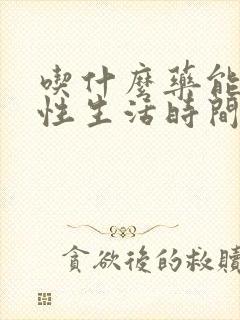 喫什麼藥能
性生活時間
貪欲後的救贖